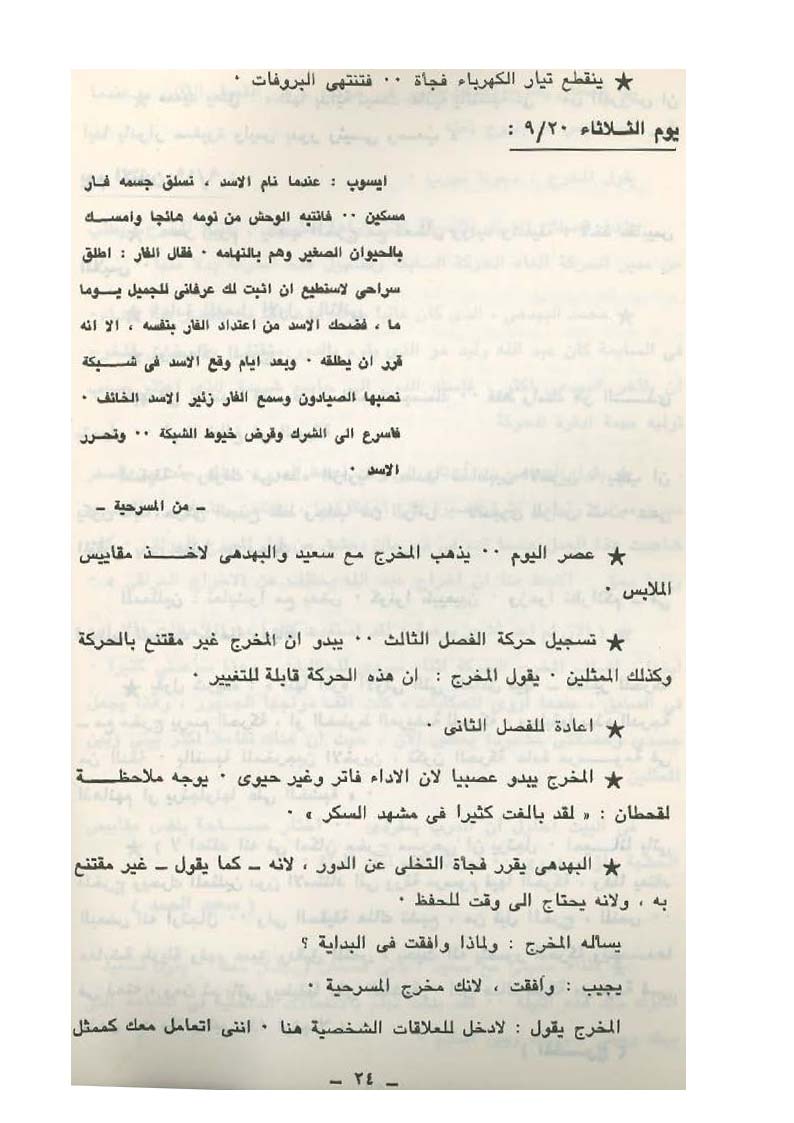 ★ ينقطع تيار الكهرباء فجأة ٠٠ فتنتهى البروفات ٠
يوم الثلاثاء ٩/٢٠ :
ايسوب : عندما نام الاسد ، تسلق جسمه فـار
مسكين ٠٠ فانتبه الوحش من نومه هائجا وامسـك
بالحيوان الصغير وهم بالتهامه ٠ فقال الفار : اطلق
سراحى لاستطيع ان اثبت لك عرفانى للجميل يـوما
ما ، فضحك الاسد من اعتداد الفار بنفسه ، الا انه
قرر ان يطلقه ٠ وبعد ايام وقع الاسد فى شـبكة
نصبها الصيادون وسمع الفار زئير الاسد الخائف ٠
فاسرع الى الشرك وقرض خيوط الشبكة ٠٠ وتحـرر
الاسد ٠
ـ من المسرحية ـ
★ عصر اليوم ٠٠ يذهب المخرج مع سعيد والبهدهى لاخـذ مقاييس
الملابس ٠
★ تسجيل حركة الفصل الثالث ٠٠ يبدو ان المخرج غير مقتنع بالحركة
وكذلك الممثلين ٠ يقول المخرج : ان هذه الحركة قابلة للتغيير ٠
★ اعادة للفصل الثانى ٠
★ المخرج يبدو عصبيا لان الاداء فاتر وغير حيوى ٠ يوجه ملاحظـة
لقحطان : « لقد بالغت كثيرا فى مشهد السكر » ٠
★ البهدهى يقرر فجأة التخلى عن الدور ، لانه ـ كما يقول ـ غير مقتنع
به ، ولانه يحتاج الى وقت للحفظ ٠
يسأله المخرج : ولماذا وافقت فى البداية ؟
يجيب : وافقت ، لانك مخرج المسرحية ٠
المخرج يقول : لادخل للعلاقات الشخصية هنا ٠ اننى اتعامل معك كممثل
ـ ٢٤ ـ